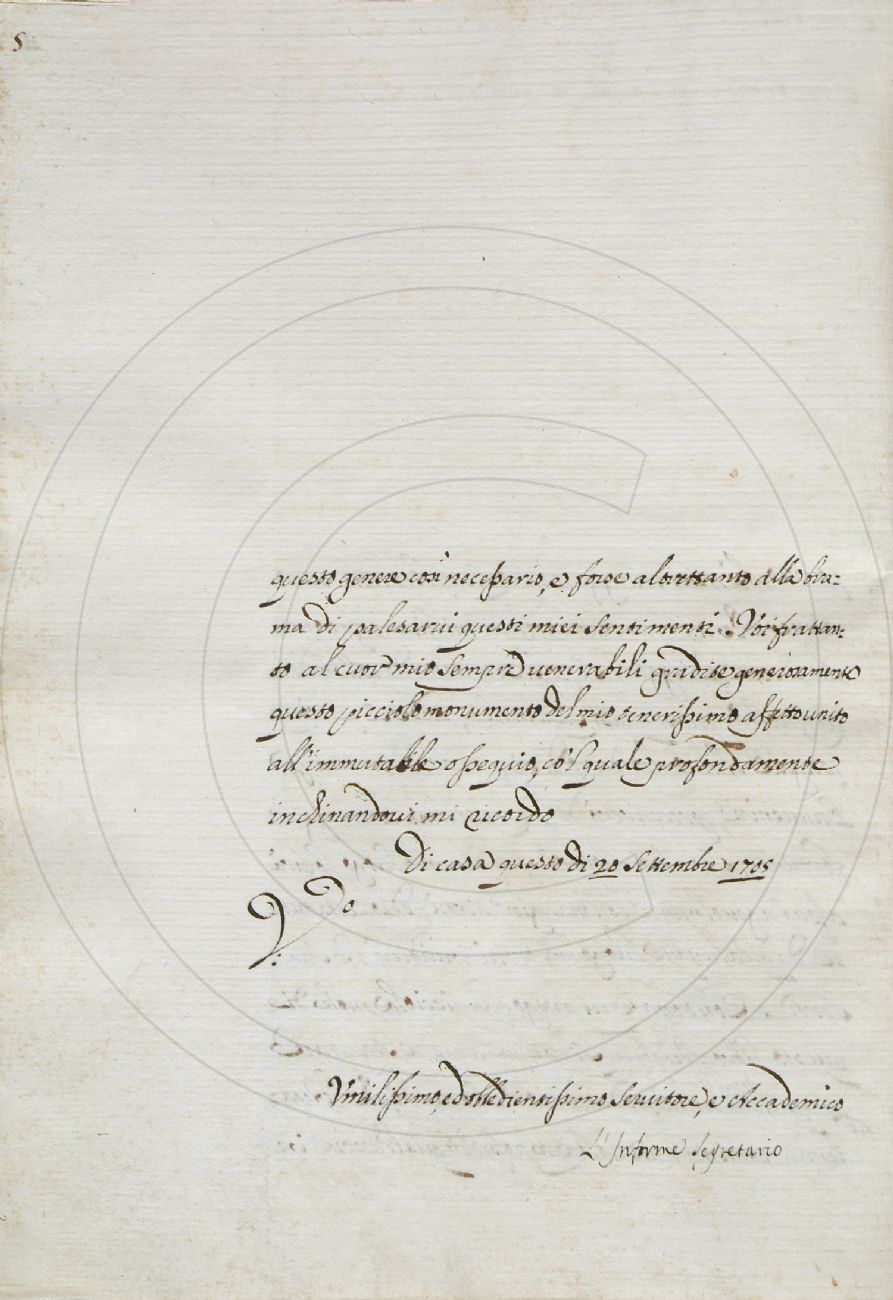 5
questo genere così necessario, e forse altrettanto alla bra-
ma di palesarvi questi miei sentimenti. Voi frattan-
to al cuor mio sempre venerabili gradite generosamente
questo picciolo monumento del mio tenerissimo affetto unito
all'immutabile ossequio, co'l quale profondamente
inchinandovi mi ricordo
Di casa questo di 20 Settembre 1705
Umilissimo, ed obbedientissimo Servitore, e Accademico
L'Informe Segretario